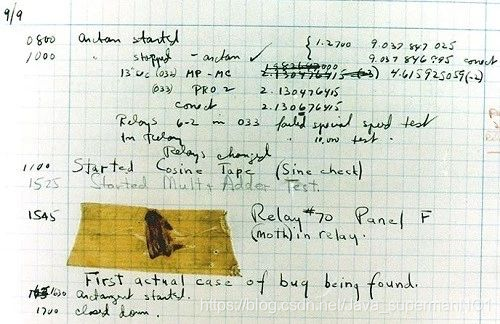 9/9
0800 Arctan started { 1.2700 9.037 847 025
1000 " stopped - arctan ✓ 9.037 846 995 correct
13"uc (032) MP - MC 2.130476415 4.615925059(-2)
(033) PRO 2 2.130476415
correct 2.130676415
Relays 6-2 in 033 failed special speed test
In Relay " 10,000 test.
Relays changed
1100 Started Cosine Tape (Sine check)
1525 Started Mult + Adder Test.
1545 Relay #70 Panel F
(moth) in relay.
First actual case of bug being found.
1630 arctangent started.
1700 closed down.
https://blog.csdn.net/Java_superman1101